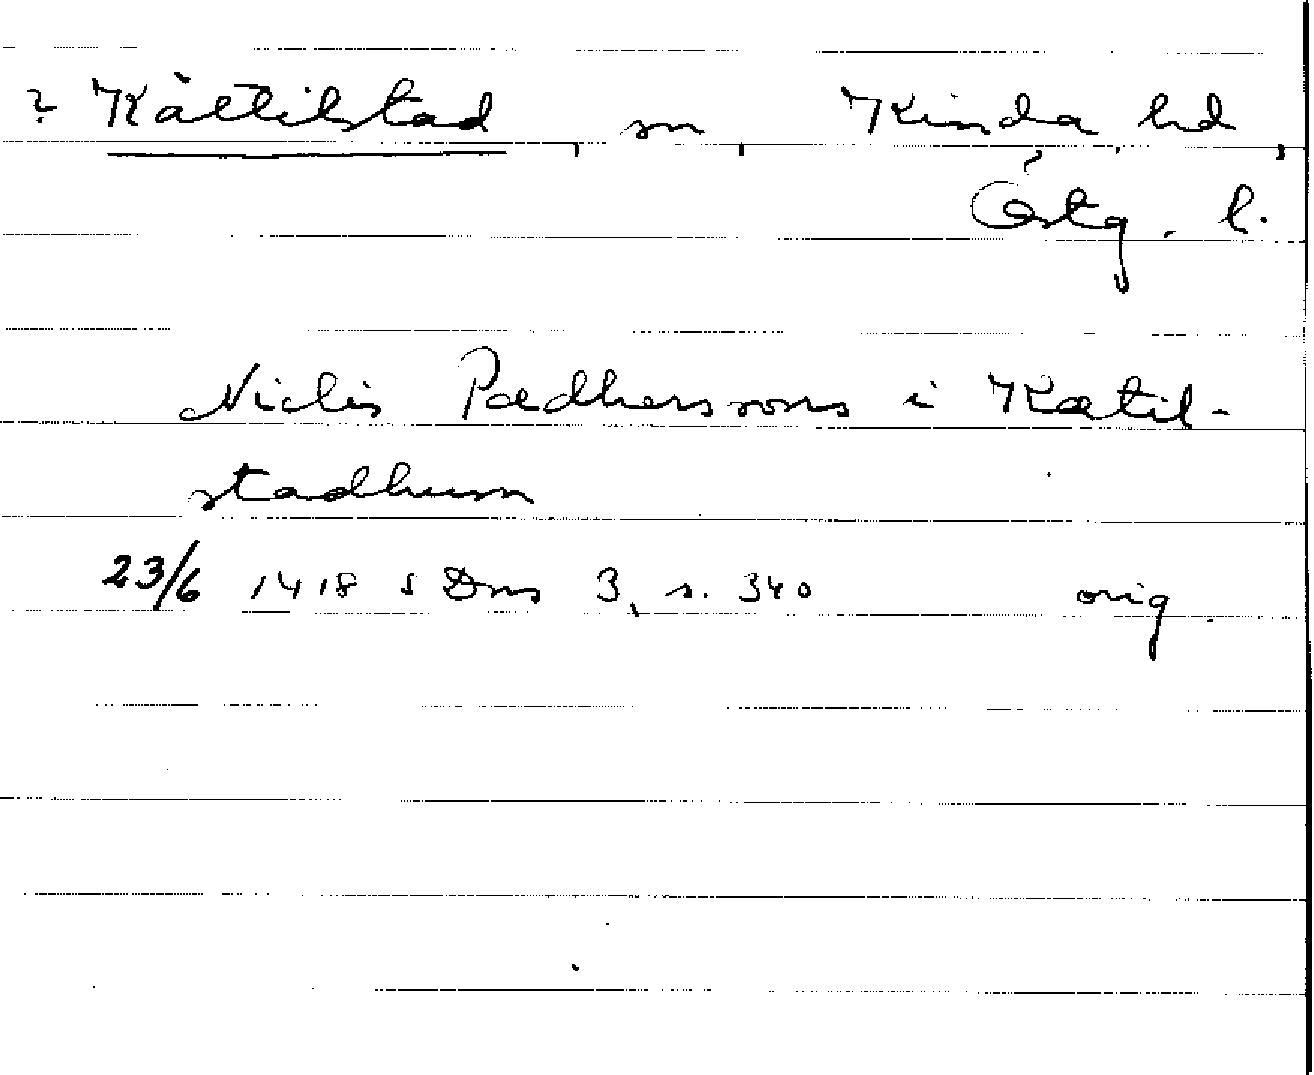 ? Kättilstad, sn, Kinda hd,
Östg. l.
Niclis Pædherssons i Kætil-
stadhum
23/6 1418 s Dns 3, s. 340 orig